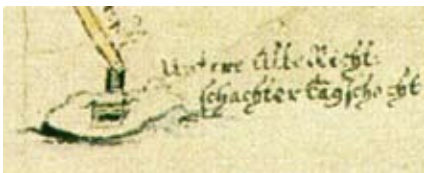 Untere Alte Richt-
schachter Tagschacht